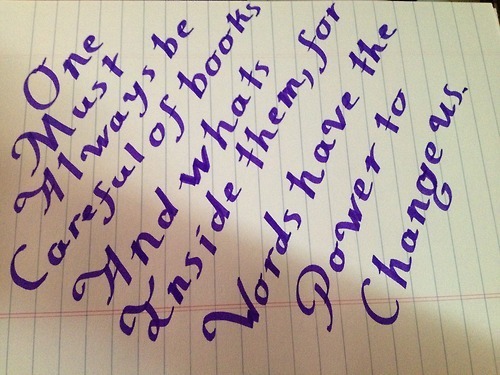 One
Must
Always be
Careful of books
And whats
Inside them, for
Words have the
Power to
Change us.